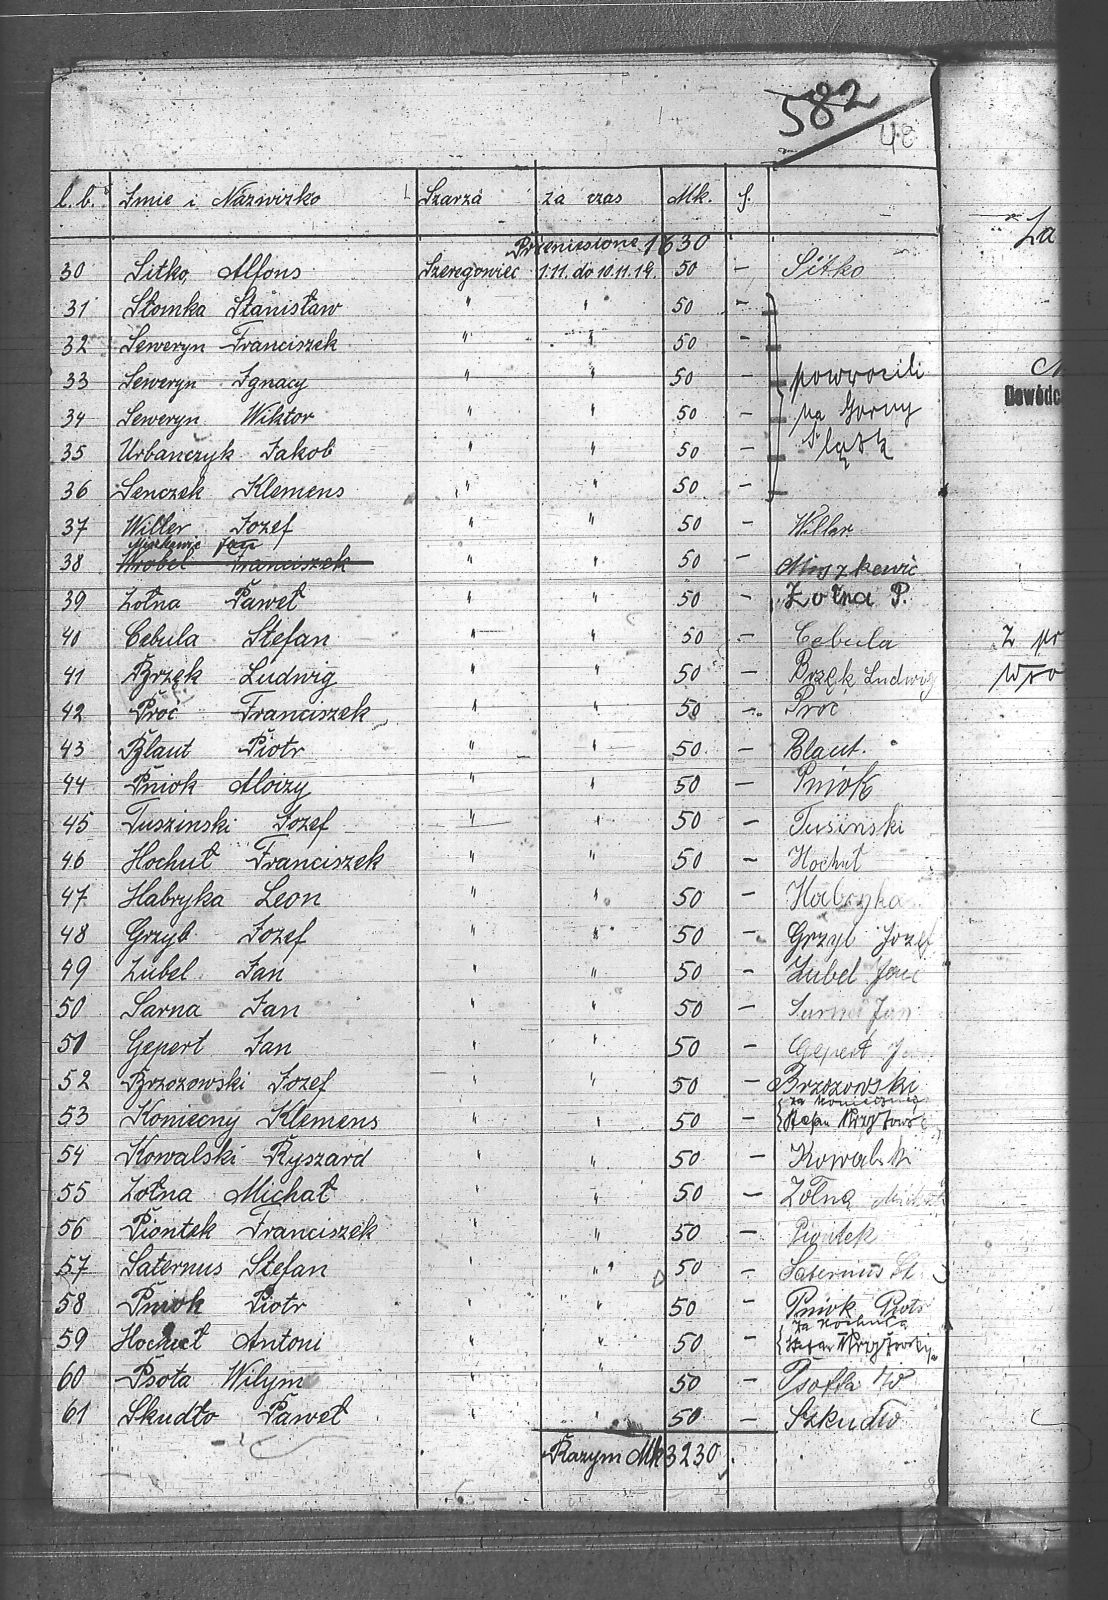 582
48
L.b. Imie i Nazwizko Szarza za czas Mk. f.
Przeniesione 1630
30 Sitko, Alfons Szeregowiec 1.11. do 10.11.19. 50 — Sitko
31 Słomka Stanisław " " 50 —
32 Seweryn Franciszek " " 50 —
33 Seweryn Ignacy " " 50 — powrocili
34 Seweryn Wiktor " " 50 — na Gorny
35 Urbanczyk Jakob " " 50 — Sląsk
36 Senczek Klemens " " 50 —
37 Willer Jozef " " 50 — Willer
Miszkewic Jan
38 Wrobel Franciszek " " 50 — Miszkewic
39 Zołna Paweł " " 50 — Zołna P.
40 Cebula Stefan " " 50 — Cebula
41 Brzęk Ludwig " " 50 — Brzęk Ludwig
42 Proc Franciszek " " 50 — Proc
43 Blaut Piotr " " 50 — Blaut.
44 Pniok Aloizy " " 50 — Pniok
45 Tuszinski Jozef " " 50 — Tusinski
46 Hochuł Franciszek " " 50 — Hochuł
47 Habryka Leon " " 50 — Habryka
48 Grzyb Jozef " " 50 — Grzyb Jozef
49 Zubel Jan " " 50 — Zubel Jan
50 Sarna Jan " " 50 — Sarna Jan
51 Gepert Jan " " 50 — Gepert Jan
52 Brzozowski Jozef " " 50 — Brzozowski
za Koniecznego
53 Koniecny Klemens " " 50 — Stefan
54 Kowalski Ryszard " " 50 — Kowalski
55 Zołna Michał " " 50 — Zołna Michał
56 Piontek Franciszek " " 50 — Piontek
57 Saternus Stefan " " 50 — Saternus St
58 Pniok Piotr " " 50 — Pniok Piotr
za Hochuła
59 Hochuł Antoni " " 50 — Stefan
60 Psota Wilym " " 50 — Psotta W
61 Skudło Paweł " " 50 — Szkudło
Razym Mk 3230
Za
Dowódc
Z pr